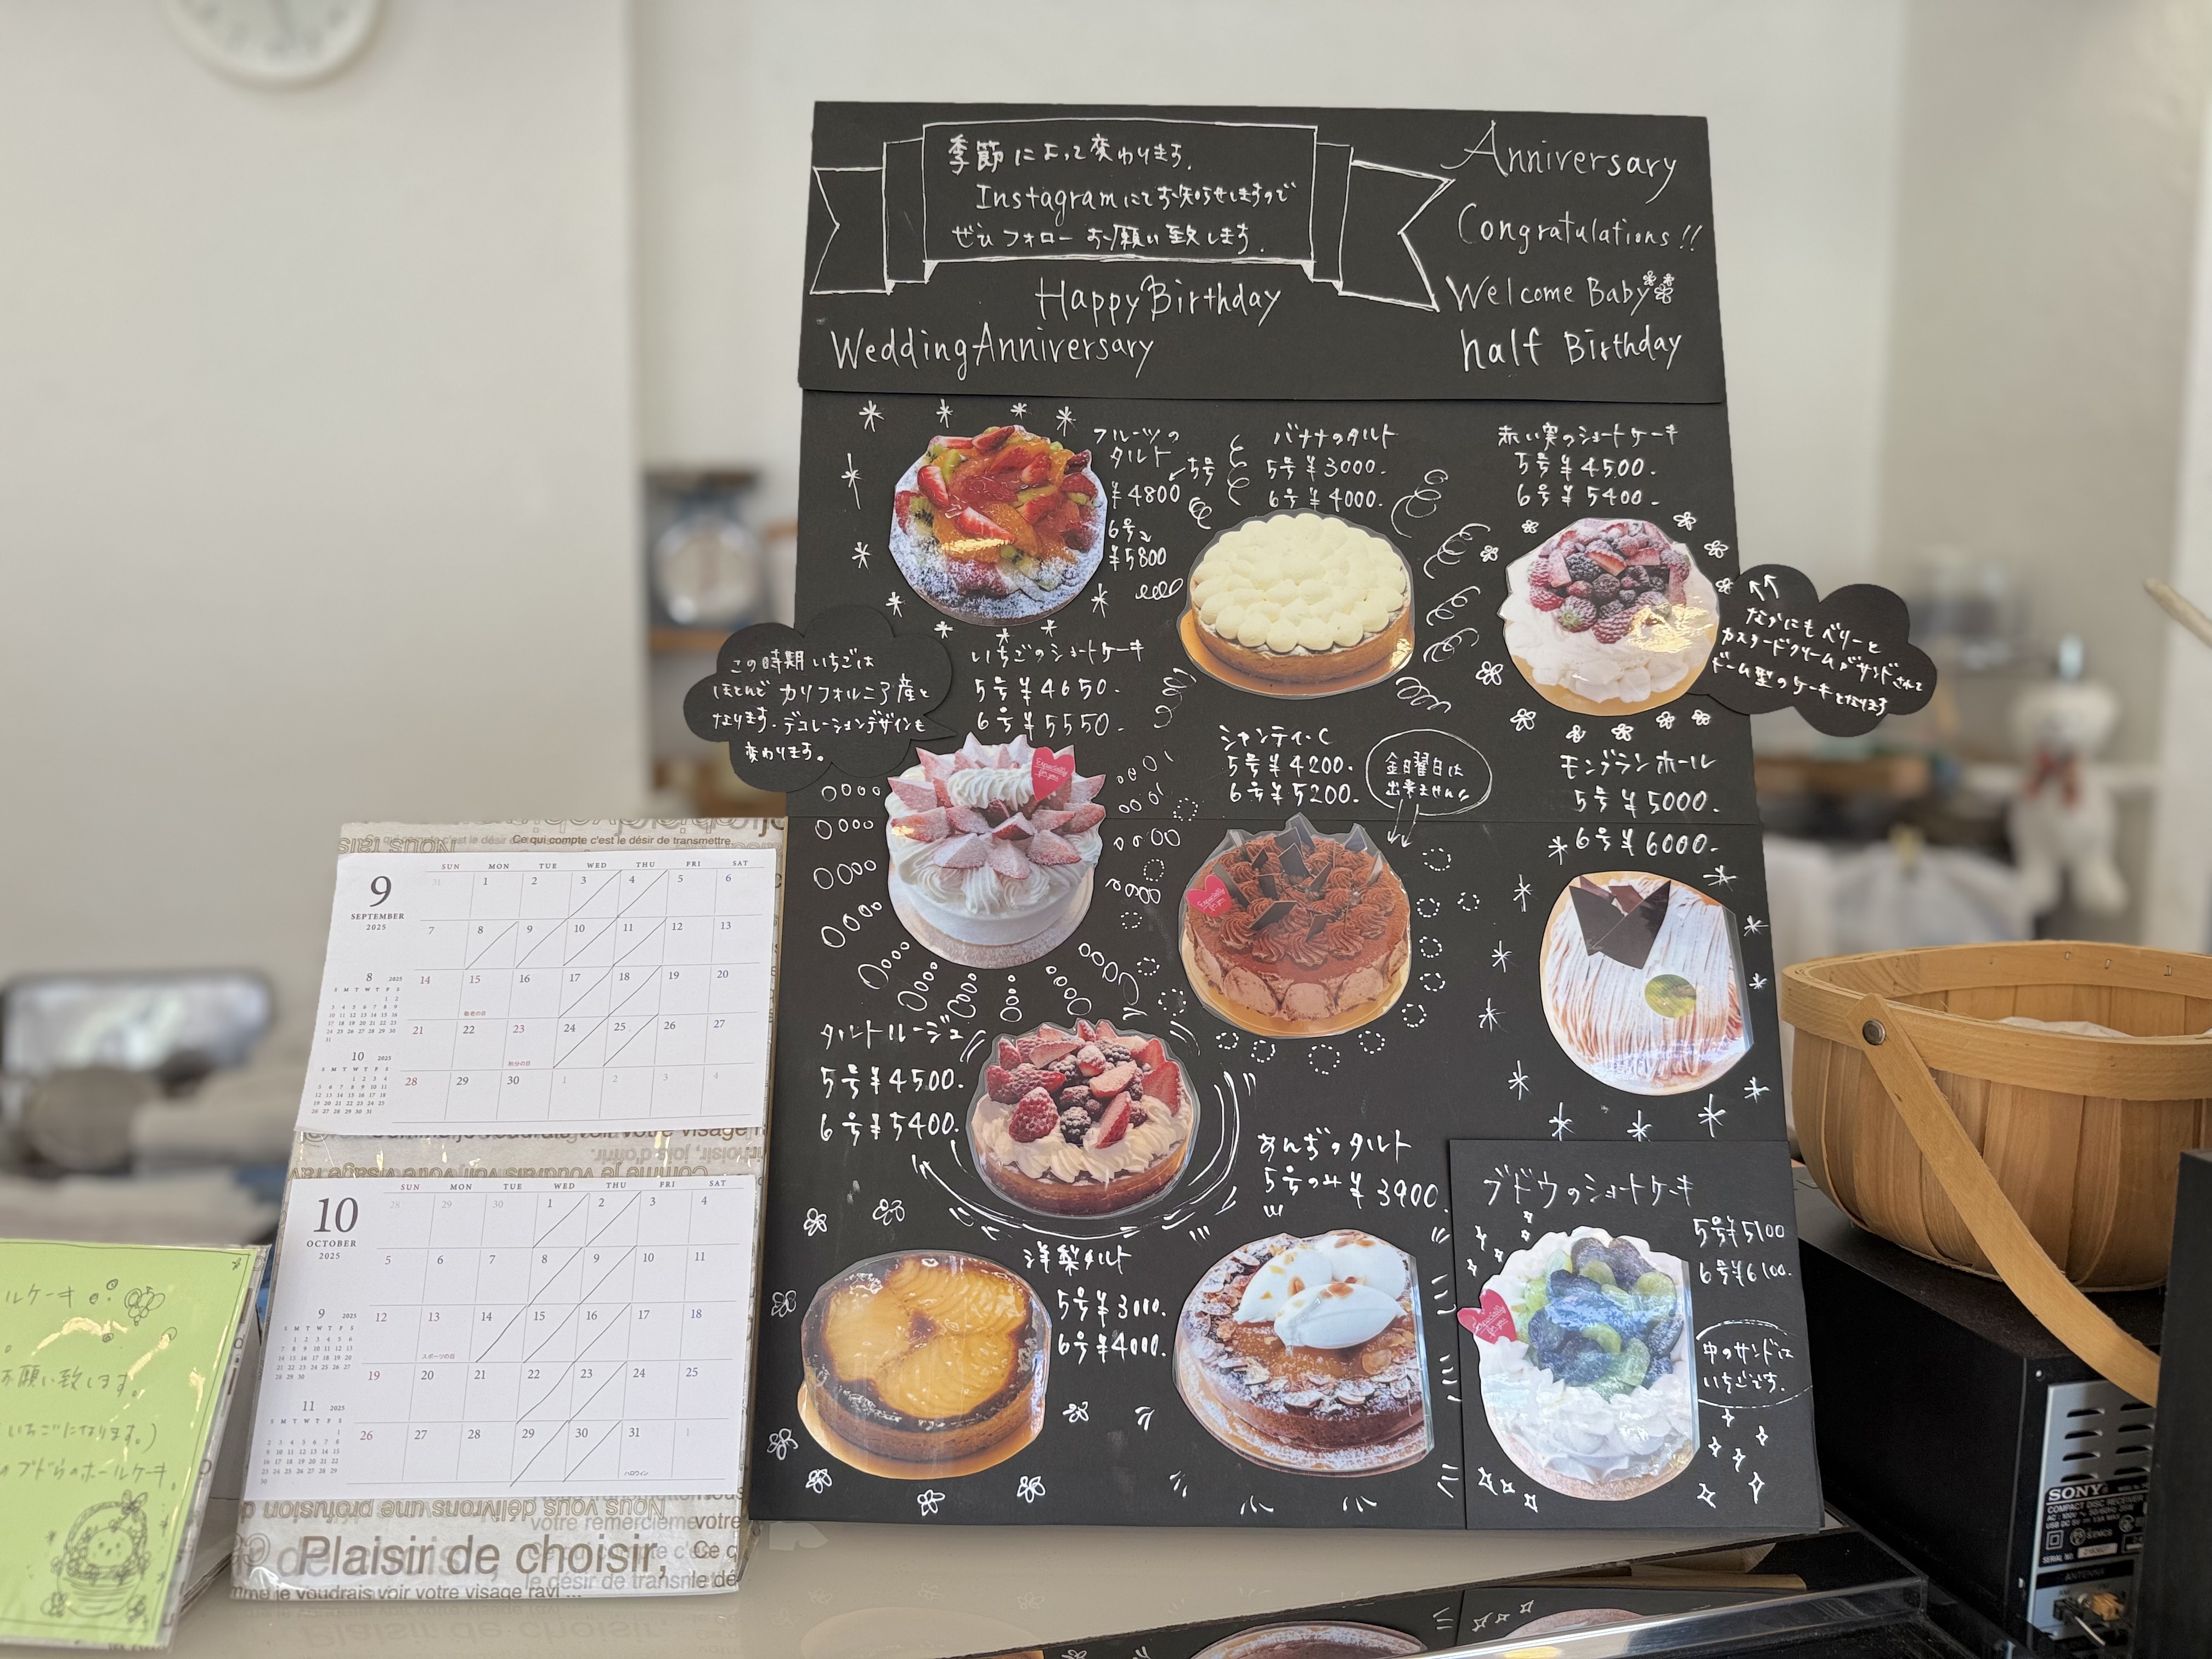 季節によって変わります。
Instagramにてお知らせしますので
ぜひフォローお願い致します。
Anniversary
Congratulations!!
Welcome Baby
half Birthday
Happy Birthday
Wedding Anniversary
フルーツの
タルト
5号
¥4800
6号
¥5800
バナナのタルト
5号 ¥3000.-
6号 ¥4000.-
赤い実のショートケーキ
5号 ¥4500.-
6号 ¥5400.-
なかにもベリーと
カスタードクリームがサンドされて
ドーム型のケーキとなります
この時期いちごは
ほとんどカリフォルニア産と
なります。デコレーションデザインも
変わります。
いちごのショートケーキ
5号 ¥4650.-
6号 ¥5550.-
Especially
for you
シャンティ・C
5号 ¥4200.-
6号 ¥5200.-
金曜日は
出来ません!
モンブランホール
5号 ¥5000.-
6号 ¥6000.-
タルトルージュ
5号 ¥4500.
6号 ¥5400.
あんずのタルト
5号のみ ¥3900.
洋梨タルト
5号 ¥3000.
6号 ¥4000.
ブドウのショートケーキ
5号 ¥5100
6号 ¥6100.
Especially
for you
中のサンドは
いちごです.
Ce qui compte c'est le désir de transmettre.
9
SEPTEMBER
2025
SUN MON TUE WED THU FRI SAT
31 1 2 3 4 5 6
7 8 9 10 11 12 13
14 15 16 17 18 19 20
敬老の日
21 22 23 24 25 26 27
秋分の日
28 29 30 1 2 3 4
8 2025
10 2025
10
OCTOBER
2025
SUN MON TUE WED THU FRI SAT
28 29 30 1 2 3 4
5 6 7 8 9 10 11
12 13 14 15 16 17 18
スポーツの日
19 20 21 22 23 24 25
26 27 28 29 30 31 1
ハロウィン
9 2025
11 2025
Nous vous délivrons une profusion
votre remerciement
Plaisir de choisir,
je voudrais voir votre visage ravi ...
ルケーキ
お願い致します。
いちごになります。)
ブドウのホールケーキ.
SONY
COMPACT DISC RECEIVER
ANTENNA